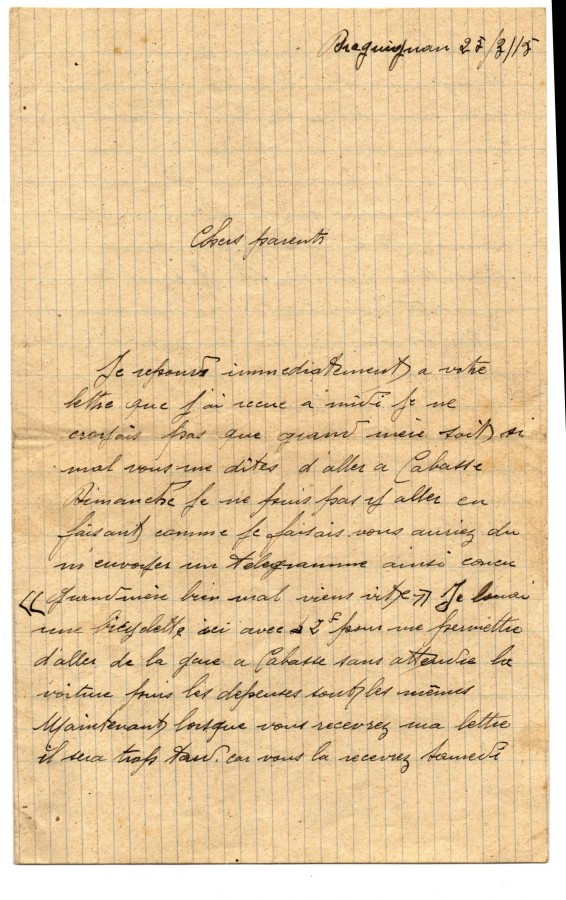 Draguignan 25/3/15
Chers parents
Je repouds immediatement a votre
lettre que j'ai recue a midi je ne
croyais pas que grand mère soit si
mal vous me dites d'aller a Cabasse
Dimanche je ne puis pas y aller en
faisant comme je faisais vous auriez du
m'envoyer un télégramme ainsi concu
« Grand mère bien mal viens vite » Je louai
une bicyclette ici avec 2F pour me permettre
d'aller de la gare a Cabasse sans attendre la
voiture puis les depenses sont les mêmes
Maintenant lorsque vous recevrez ma lettre
il sera trop tard. car vous la recevrez Samedi